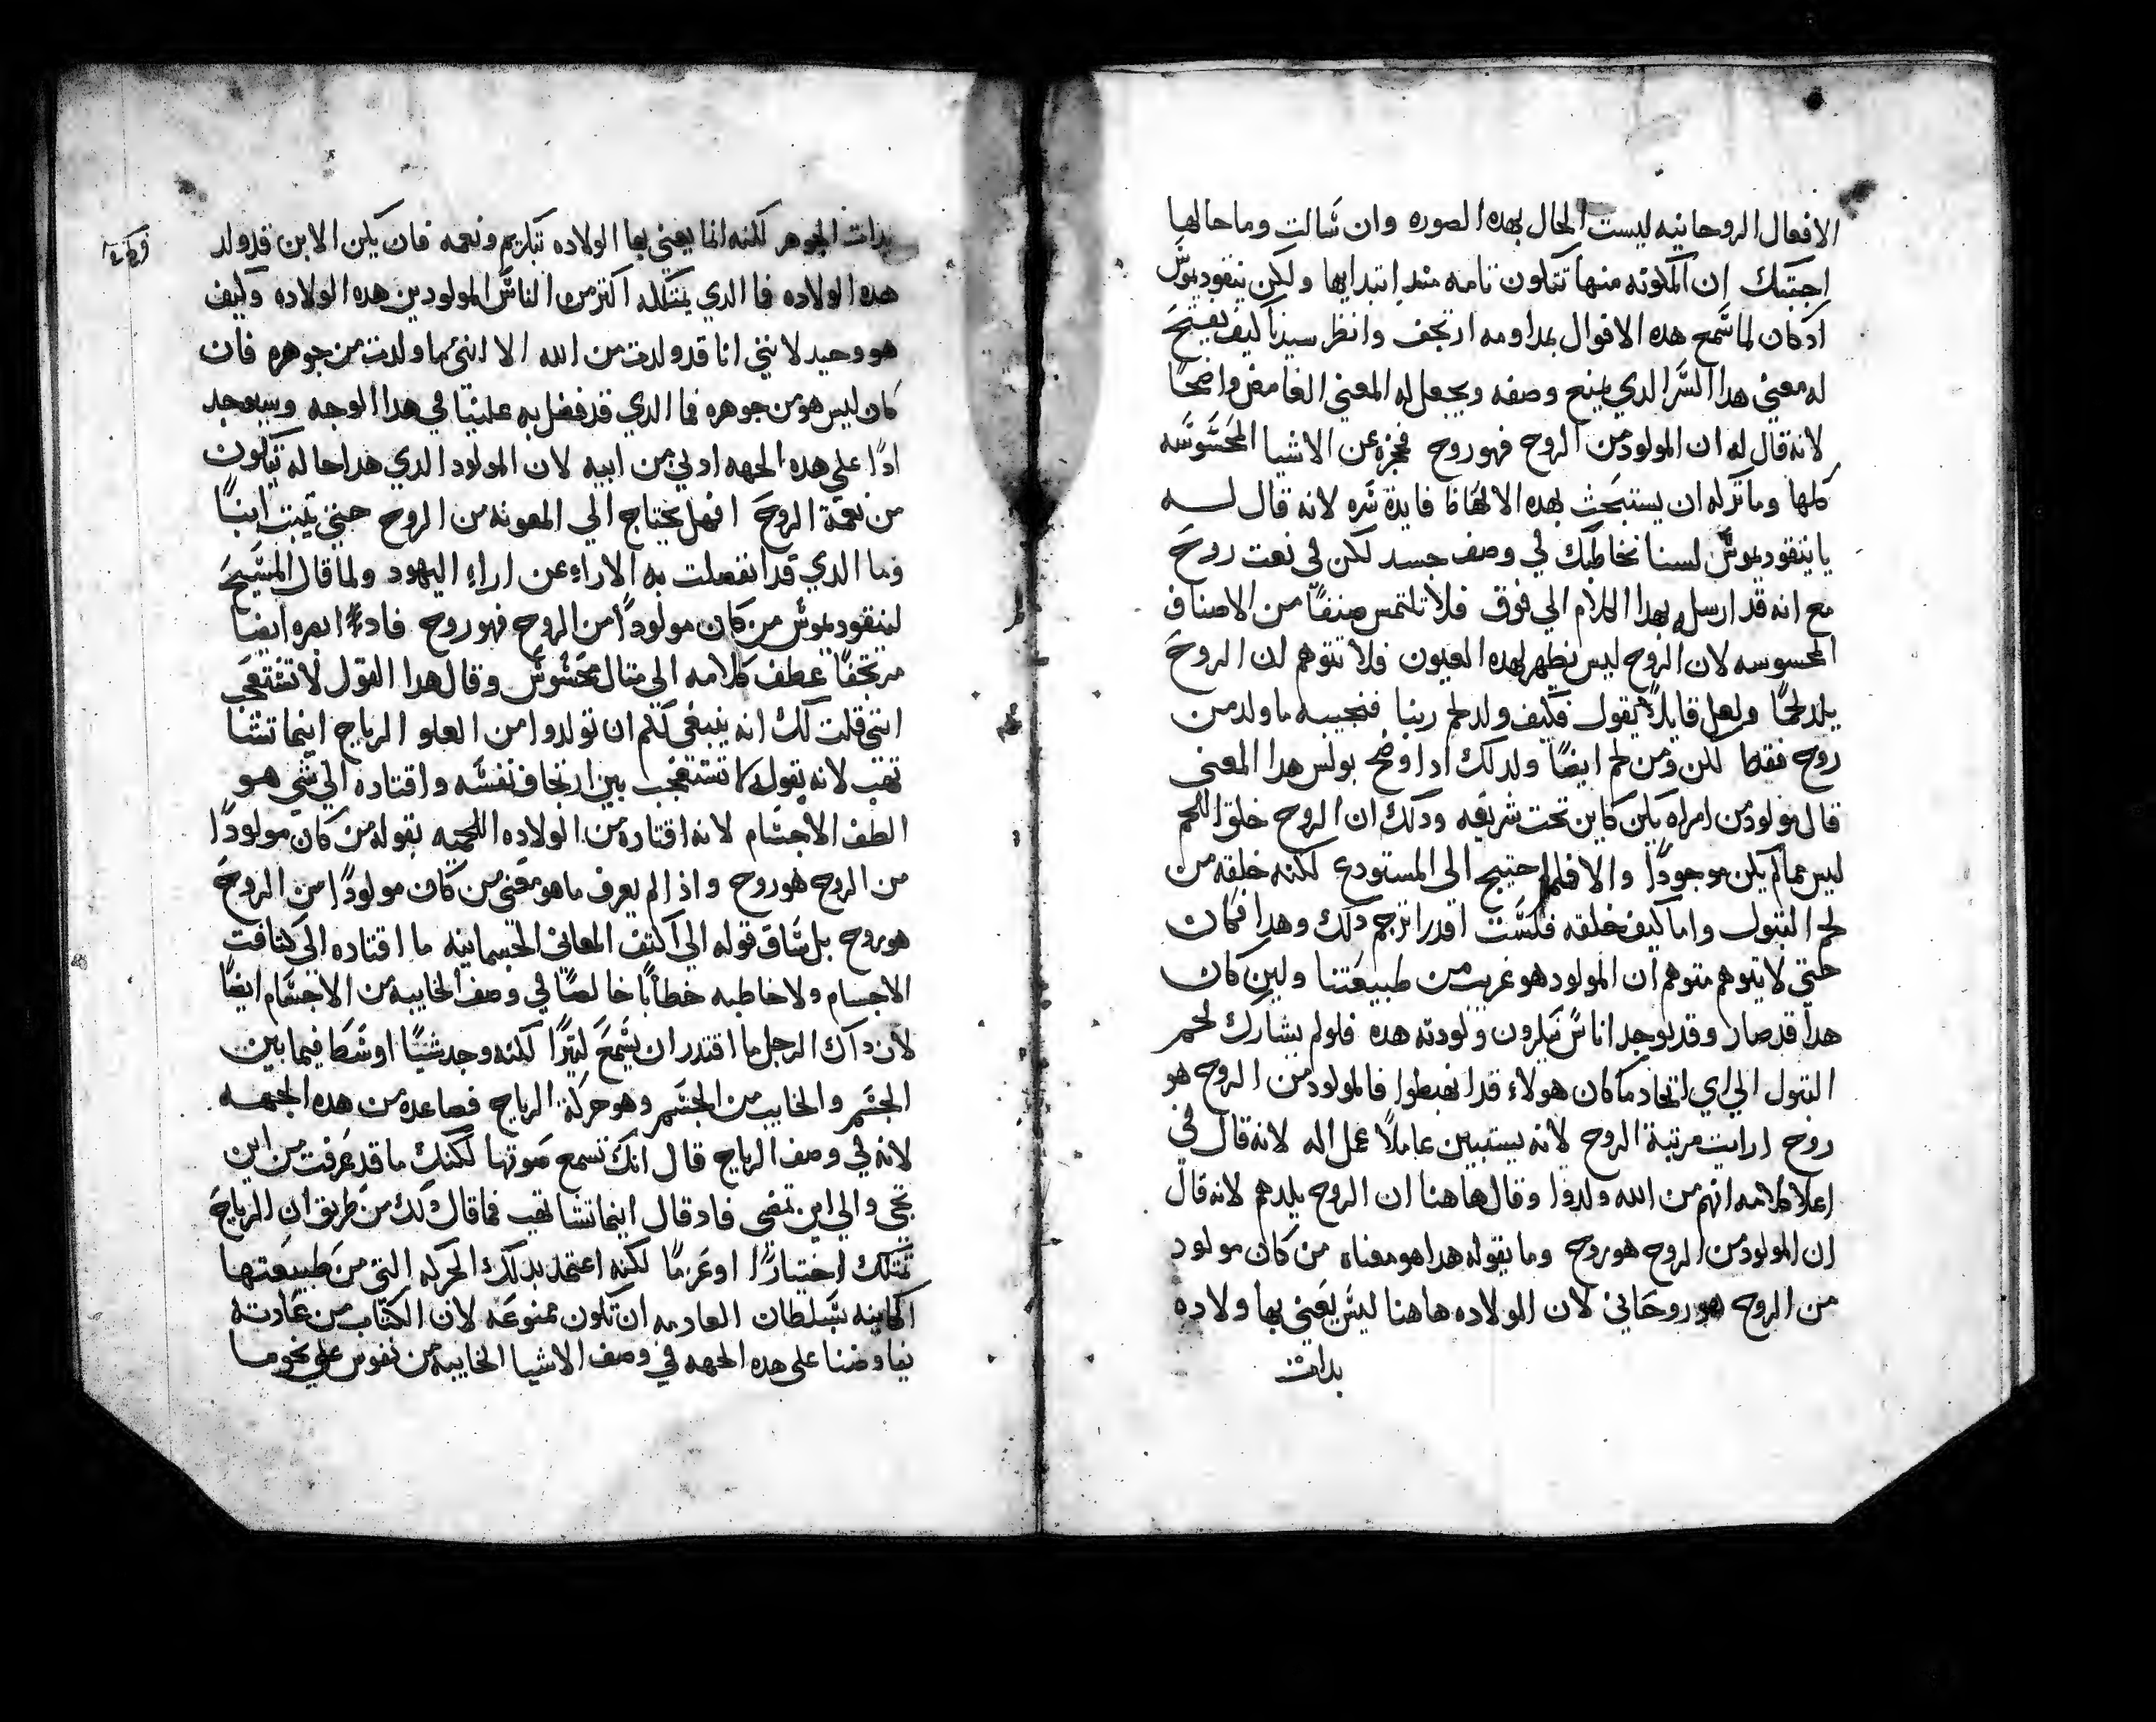 الافعال الروحانيه ليست الحال بهده الصوره وان سالت وما حالها
اجبتك ان المكونه منها تتكون تامه مند ابتدايها ولكن نيقوديموس
ادكان لما سمع هده الاقوال بمداومه ارتجف وانظر سيدنا كيف يفتح
له معني هدا السر الدي يمنع وصفه ويجعل له المعني الغامض واضحًا
لانه قال له ان المولود من الروح فهو روح فحجزه عن الاشيا المحسوسه
كلها وما تركه ان يستبحث بهده الالحاظ فايدة سره لانه قال لـــه
يا نيقوديموس لسنا نخاطبك في وصف جسد لكن في نعت روح
مع انه قد ارسله بهدا الكلام الي فوق فلا تلتمس صنفًا من الاصناف
المحسوسه لان الروح ليس تظهر لهده العيون فلا تتوهم ان الروح
يلد لحمًا ولعل قايلاً يقول فكيف ولد لحم ربنا فنجيبه ما ولد من
روح فقط لكن ومن لحم ايضًا ولدلك ادا اوضح بولس هدا المعني
قال مولود من امراه يكن كاين تحت شريعه ودلك ان الروح خلق اللحم
ليس مما لم يكن موجودًا والا فلم احتيج الي المستودع لكنه خلقه من
لحم البتول واما كيف خلقه فلست اقدر اترجم دلك وهدا فكان
حتي لا يتوهم متوهم ان المولود هو غريب من طبيعتنا ولين كان
هدا قد صار وقد يوجد اناس ينكرون ولودته هده فلو لم يشارك لحم
البتول الي اي اتحاد ما كان هولاء قد انهبطوا فالمولود من الروح هو
روح ارايت مرتبة الروح لانه يستبين عاملاً عمل اله لانه قال في
اعلا كلامه انهم من الله ولدوا وقال هاهنا ان الروح يلدهم لانه قال
ان المولود من الروح هو روح وما يقوله هدا هو معناه من كان مولود
من الروح هو روحاني لان الولاده هاهنا ليس يعني بها ولاده
بدات
بدات الجوهر لكنه انما يعني بها الولاده تبكريم ونعمه فان يكن الابن قد ولد
هده الولاده فما الدي يمتلكه اكتر من الناس المولودين هده الولاده وكيف
هو وحيد لانني انا قد ولدت من الله الا انني ما ولدت من جوهره فان
كان ليس هو من جوهره فما الدي قد فضل به علينا في هدا الوجه وسيوجد
ادًا علي هده الجهه ادني من ابيه لان المولود الدي هدا حاله تتكون
من نعمة الروح افهل يحتاج الي المعونه من الروح حتي يثبت ابنًا
وما الدي قد انفصلت به الاراء عن اراء اليهود ولما قال المسيح
لنيقوديموس من كان مولودًا من الروح فهو روح فادء ابصره ايضا
مرتجفًا عطف كلامه الي متال محسوس وقال هدا القول لا تستعجب
انني قلت لك انه ينبغي لكم ان تولدوا من العلو الرياح اينما تشا
تهب لانه بقوله لا تستعجب بين ارتجاف نفسه واقتاده الي شي هـو
الطف الاجسام لانه اقتاده من الولاده اللحميه بقوله من كان مولودًا
من الروح هو روح واذ الم يعرف ما هو معني من كان مولودًا من الروح
هو روح بل ساق قوله الي اكتف المعاني الجسمانيه ما اقتاده الي كتافت
الاجسام ولا خاطبه خطابًا خالصًا في وصف الخايبه من الاجسام ايضًا
لان داك الرجل ما اقتدر ان يسمع ليترًا لكنه وجد شيًا اوسط فيما بين
الجسم والخايب من الجسم وهو حركة الرياح فصاعده من هده الجهـه
لانه في وصف الرياح قال انك تسمع صوتها لكنك ما قد عرفت من اين
تجي والي اين تمضي فاد قال اينما تشا تهب فما قال دلك من طريق ان الرياح
تمتلك اختيارًا او عزمًا لكنه اعتمد بدلك الحركه التي من طبيعتها
الكاينه بسلطان العادمه ان تكون ممنوعه لان الكتاب من عادته
يفاوضنا علي هده الجهه في وصف الاشيا الخايبه من نفوس علي نحو ما